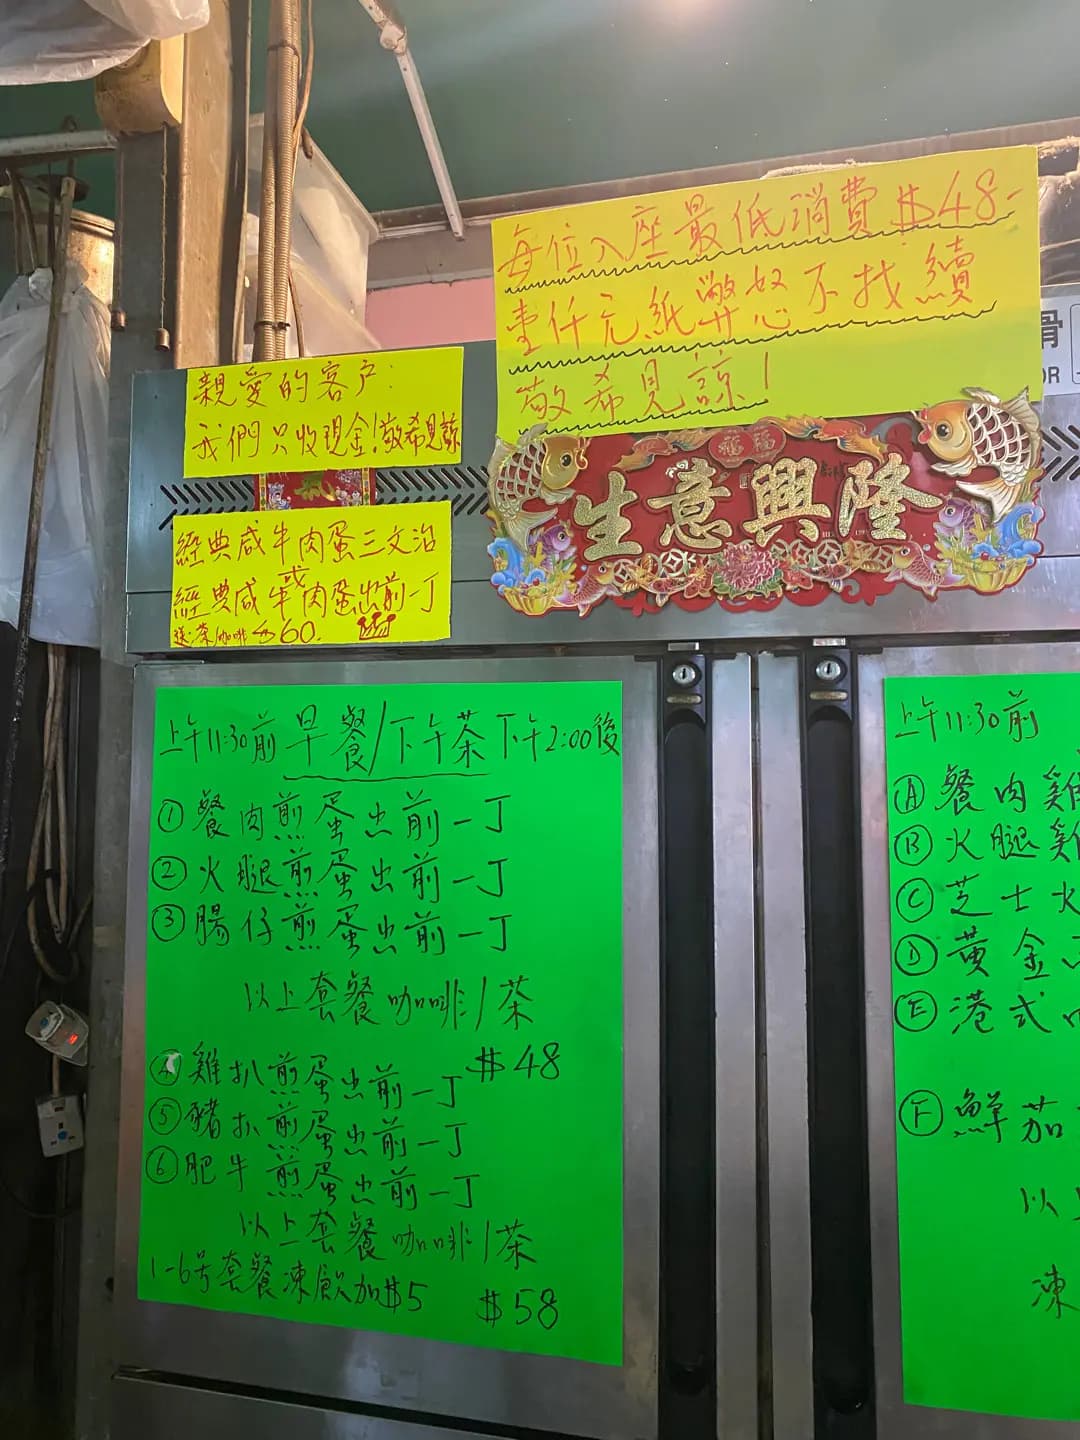 每位入座最低消費$48-
壹仟元紙幣恕不找續
敬希見諒！
親愛的客户：
我們只收現金！敬希見諒
生意興隆
經典咸牛肉蛋三文治
經典咸牛或肉蛋出前一丁
送:茶/咖啡 $60.
上午11:30前早餐/下午茶下午2:00後
①餐肉煎蛋出前一丁
②火腿煎蛋出前一丁
③腸仔煎蛋出前一丁
以上套餐咖啡/茶
$48
④雞扒煎蛋出前一丁
⑤豬扒煎蛋出前一丁
⑥肥牛煎蛋出前一丁
以上套餐咖啡/茶
1-6号套餐凍飲加$5
$58
上午11:30前
Ⓐ餐肉雞
Ⓑ火腿雞
Ⓒ芝士火
Ⓓ黃金
Ⓔ港式
Ⓕ鮮茄
以上
凍
滑